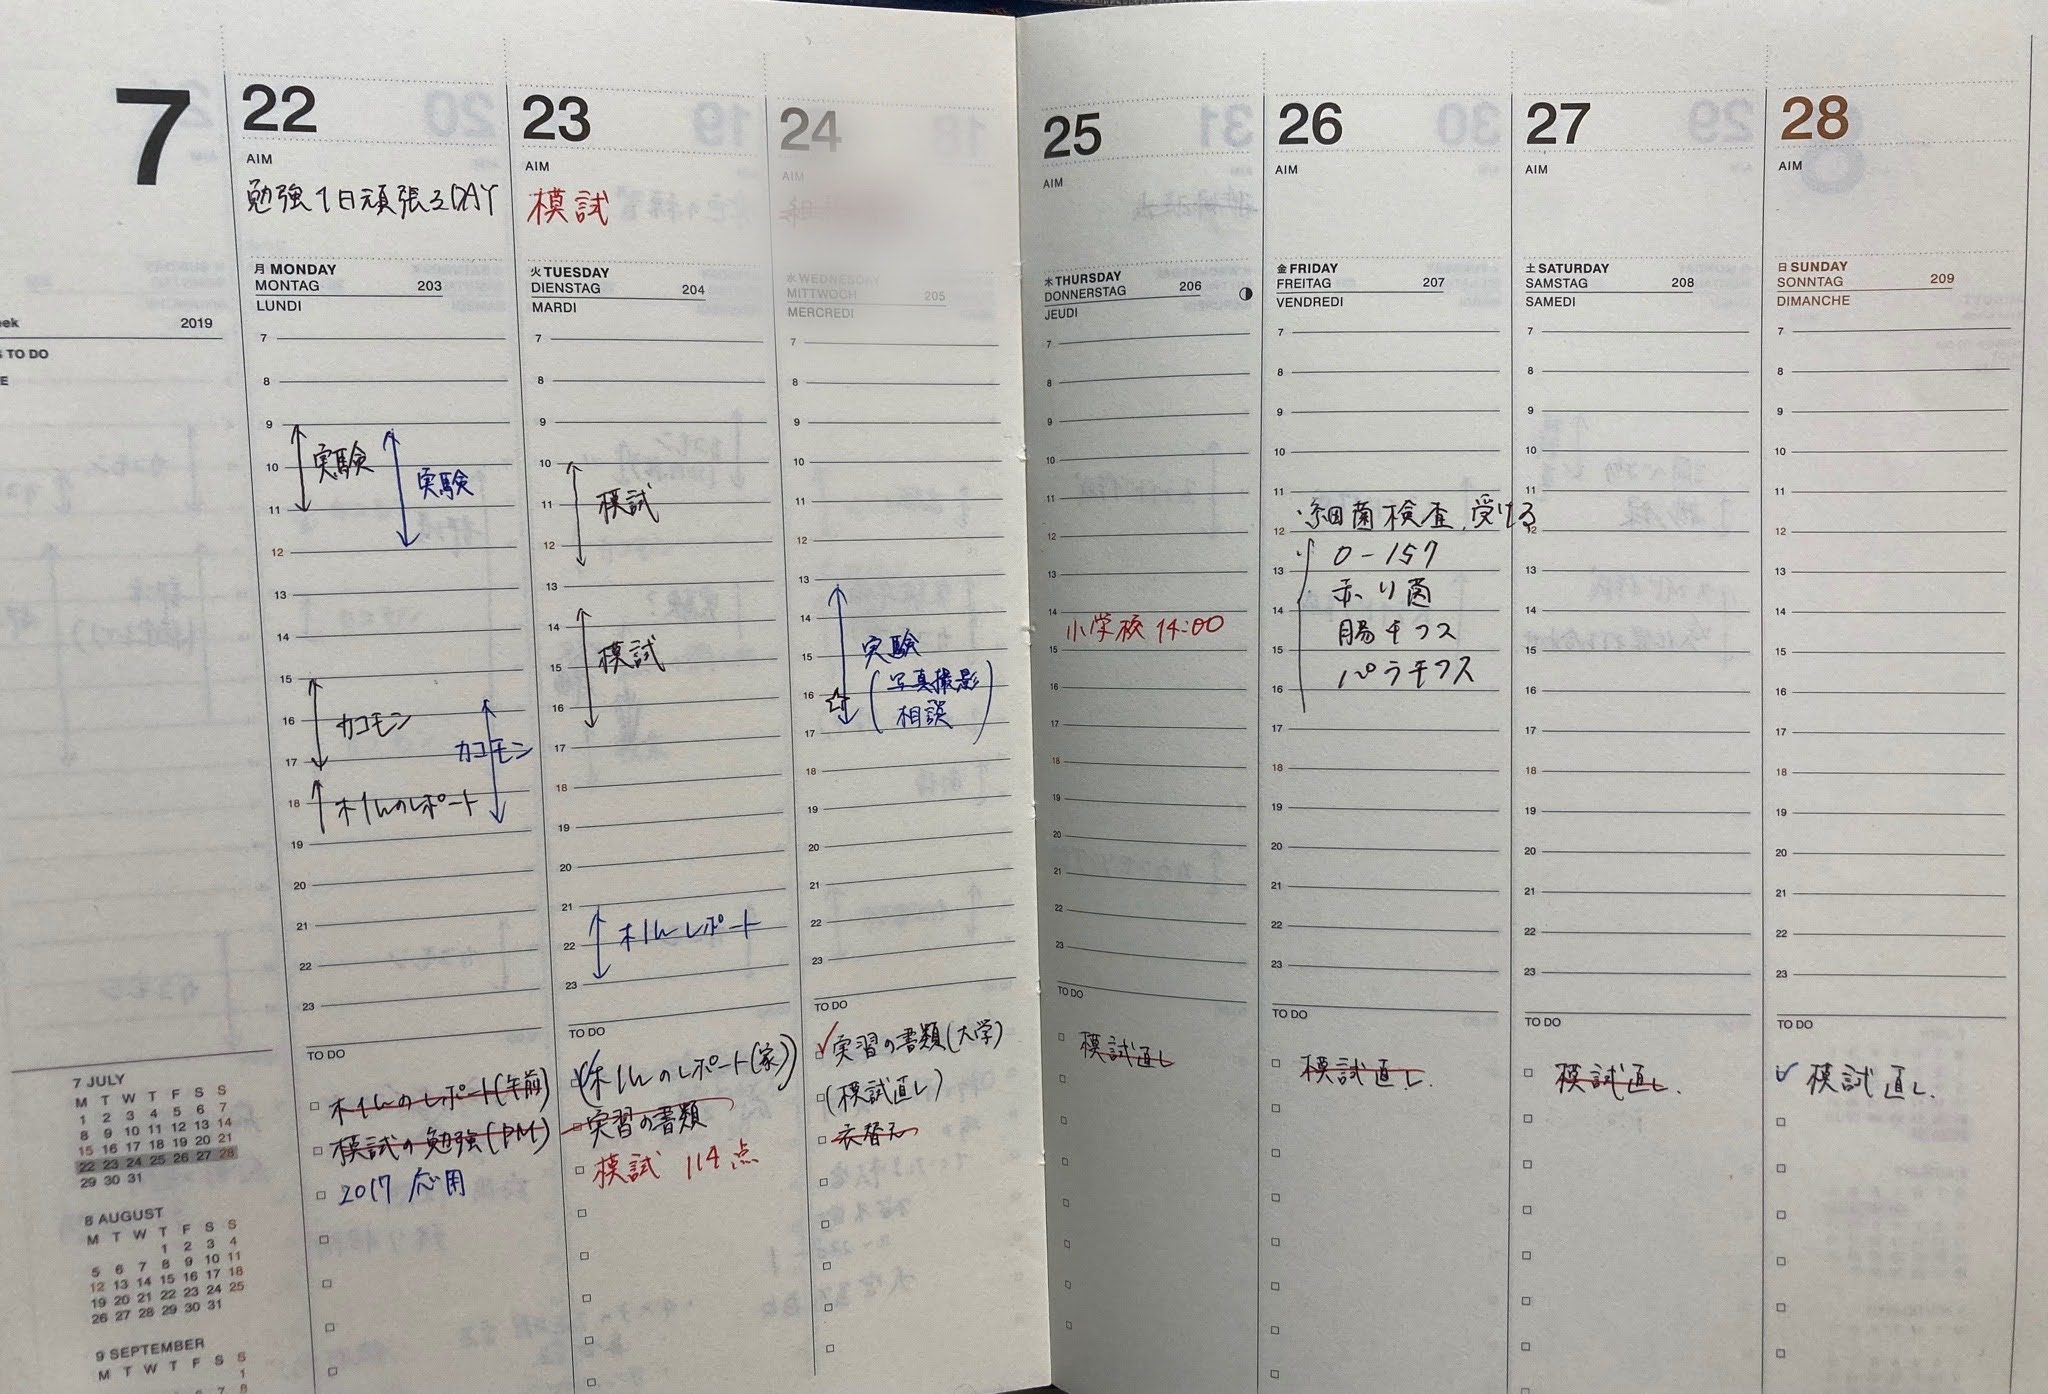 7
eek 2019
S TO DO
E
22
AIM
勉強1日頑張るDAY
月 MONDAY
MONTAG 203
LUNDI
7
8
9
10
11
12
13
14
15
16
17
18
19
20
21
22
23
実験
実験
カコモン
カコモン
木1hのレポート
TO DO
木1hのレポート(午前)
模試の勉強(PM)
2017 応用
23
AIM
模試
火 TUESDAY
DIENSTAG 204
MARDI
7
8
9
10
11
12
13
14
15
16
17
18
19
20
21
22
23
模試
模試
木1hレポート
TO DO
(木1hのレポート(家))
実習の書類
模試 114点
24
AIM
水 WEDNESDAY
MITTWOCH 205
MERCREDI
7
8
9
10
11
12
13
14
15
16
17
18
19
20
21
22
23
実験
(写真撮影
相談)
TO DO
実習の書類(大学)
(模試直し)
衣替え
25
AIM
木 THURSDAY
DONNERSTAG 206
JEUDI
7
8
9
10
11
12
13
14
小学校 14:00
15
16
17
18
19
20
21
22
23
TO DO
模試直し
26
AIM
金 FRIDAY
FREITAG 207
VENDREDI
7
8
9
10
11
・細菌検査受ける
12
O-157
13
赤リ菌
14
腸チフス
15
パラチフス
16
17
18
19
20
21
22
23
TO DO
模試直し.
27
AIM
土 SATURDAY
SAMSTAG 208
SAMEDI
7
8
9
10
11
12
13
14
15
16
17
18
19
20
21
22
23
TO DO
模試直し.
28
AIM
日 SUNDAY
SONNTAG 209
DIMANCHE
7
8
9
10
11
12
13
14
15
16
17
18
19
20
21
22
23
TO DO
模試直し.
7 JULY
M T W T F S S
1 2 3 4 5 6 7
8 9 10 11 12 13 14
15 16 17 18 19 20 21
22 23 24 25 26 27 28
29 30 31
8 AUGUST
M T W T F S S
1 2 3 4
5 6 7 8 9 10 11
12 13 14 15 16 17 18
19 20 21 22 23 24 25
26 27 28 29 30 31
9 SEPTEMBER
M T W T F S S
1